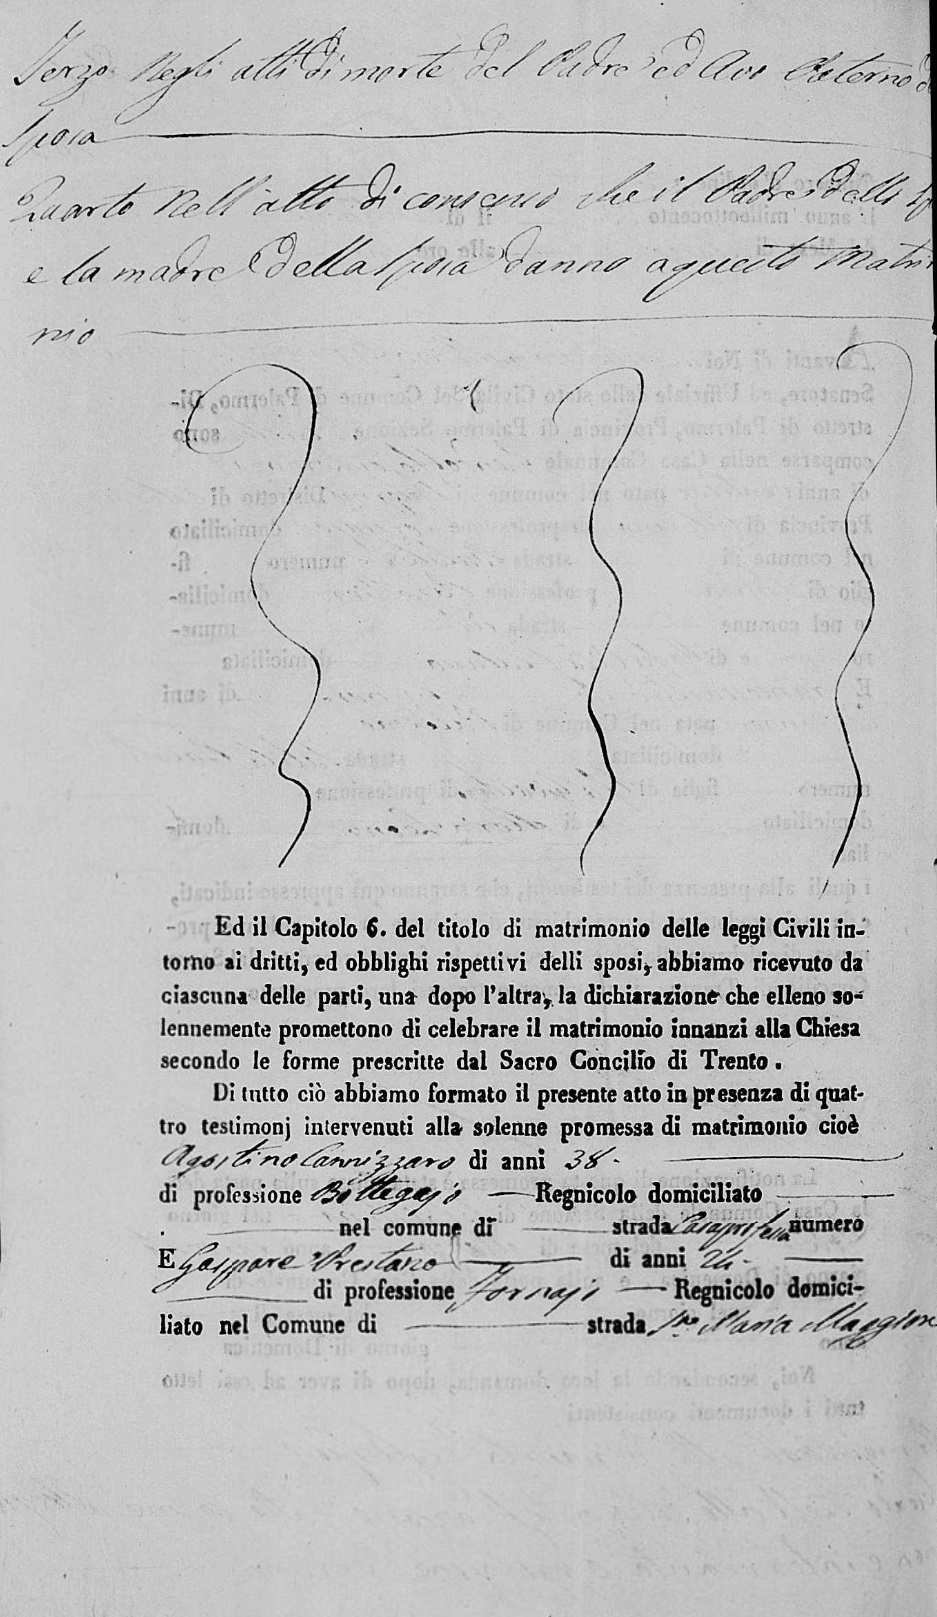 Terzo Negli atti di morte del Padre ed Avo Paterno
Sposa
Quarto Nell'atto di consenso che il Padre dello
e la madre della Sposa danno a questo Matri
nio
Ed il Capitolo 6. del titolo di matrimonio delle leggi Civili in-
torno ai dritti, ed obblighi rispettivi delli sposi, abbiamo ricevuto da
ciascuna delle parti, una dopo l'altra, la dichiarazione che elleno so-
lennemente promettono di celebrare il matrimonio innanzi alla Chiesa
secondo le forme prescritte dal Sacro Concilio di Trento.
Di tutto ciò abbiamo formato il presente atto in presenza di quat-
tro testimonj intervenuti alla solenne promessa di matrimonio cioè
Agostino Cannizzaro di anni 38.
di professione Bottegajo Regnicolo domiciliato
nel comune di strada Casaprofessa numero
E Gaspare di anni 24.
di professione fornajo Regnicolo domici-
liato nel Comune di strada Sta. Maria Maggiore